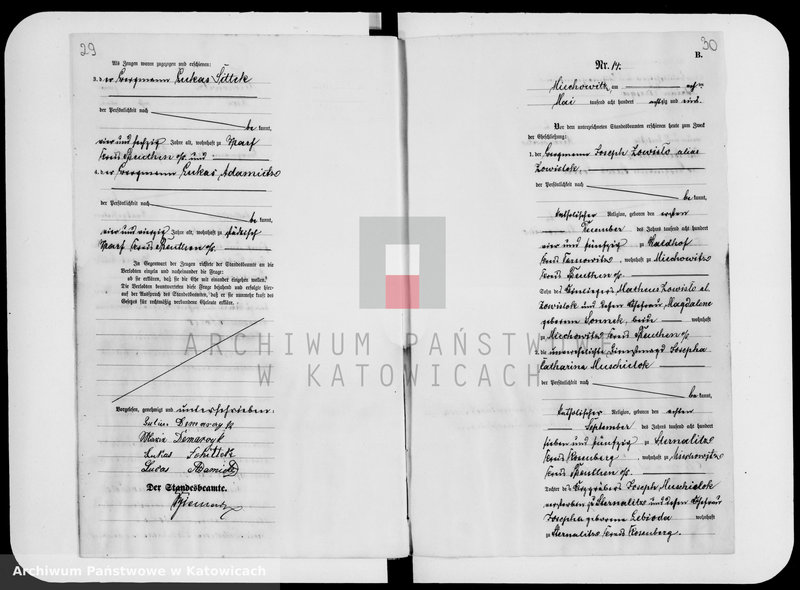 29
Als Zeugen waren zugezogen und erschienen:
3. der Bergmann Lukas Sittek
der Persönlichkeit nach
be kannt,
vier und sechzig Jahre alt, wohnhaft zu Karf
Kreis Beuthen o/s. und
4. der Bergmann Lukas Adamietz
der Persönlichkeit nach
be kannt,
vier und vierzig Jahre alt, wohnhaft zu städtisch
Karf Kreis Beuthen o/s.
In Gegenwart der Zeugen richtete der Standesbeamte an die
Verlobten einzeln und nacheinander die Frage:
ob sie erklären, daß sie die Ehe mit einander eingehen wollen.
Die Verlobten beantworteten diese Frage bejahend und erfolgte hier-
auf der Ausspruch des Standesbeamten, daß er sie nunmehr kraft des
Gesetzes für rechtmäßig verbundene Eheleute erkläre.
Vorgelesen, genehmigt und unterschrieben:
Maria Demarczyk
Lukas Schittek
Lucas Adamietz
Der Standesbeamte.
30
B.
Nr. 14.
Miechowitz, am
Mai tausend acht hundert achtzig und vier.
Vor dem unterzeichneten Standesbeamten erschienen heute zum Zweck
der Eheschließung:
1. der Bergmann Joseph Zowislo alias
Zowislok,
der Persönlichkeit nach
be kannt,
katholischer Religion, geboren den ersten
Dezember des Jahres tausend acht hundert
vier und fünfzig zu Waldhof
Kreis Tarnowitz, wohnhaft zu Miechowitz
Kreis Beuthen o/s.
Sohn des Matheus Zowislo al.
Zowislok und dessen Ehefrau, Magdalene
geborene Sonnek, beide wohnhaft
zu Miechowitz Kreis Beuthen o/s
2. die unverehelichte Dienstmagd Josepha
Catharina Muschielok
der Persönlichkeit nach
be kannt,
katholischer Religion, geboren den achten
September des Jahres tausend acht hundert
sieben und fünfzig zu Sternalitz
Kreis Rosenberg, wohnhaft zu Miechowitz
Kreis Beuthen o/s.
Tochter des Joseph Muschielok
verstorben zu Sternalitz und dessen Ehefrau
Josepha geborene Lebioda wohnhaft
zu Sternalitz Kreis Rosenberg.
ARCHIWUM PAŃSTWOWE
W KATOWICACH
Archiwum Państwowe w Katowicach